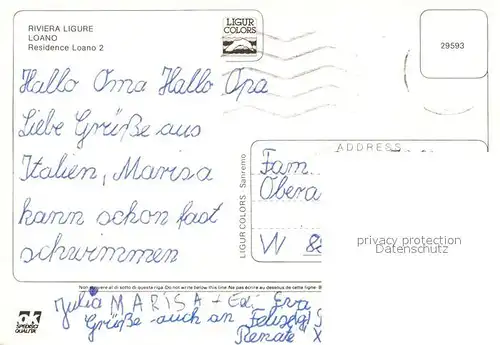 RIVIERA LIGURE
LOANO
Residence Loano 2
LIGUR
COLORS
29593
Hallo Oma Hallo Opa
Liebe Grüße aus
Italien, Marisa
kann schon fast
schwimmen
ADDRESS
LIGUR COLORS Sanremo
Fam
Obera
W 8
privacy protection
Datenschutz
Non scrivere al di sotto di questa riga Do not write below this line Ne pas écrire au dessous de cette ligne
Julia MARISA + Edi Eva
Grüße auch an
Renate
SPEDISCI
QUALITÀ